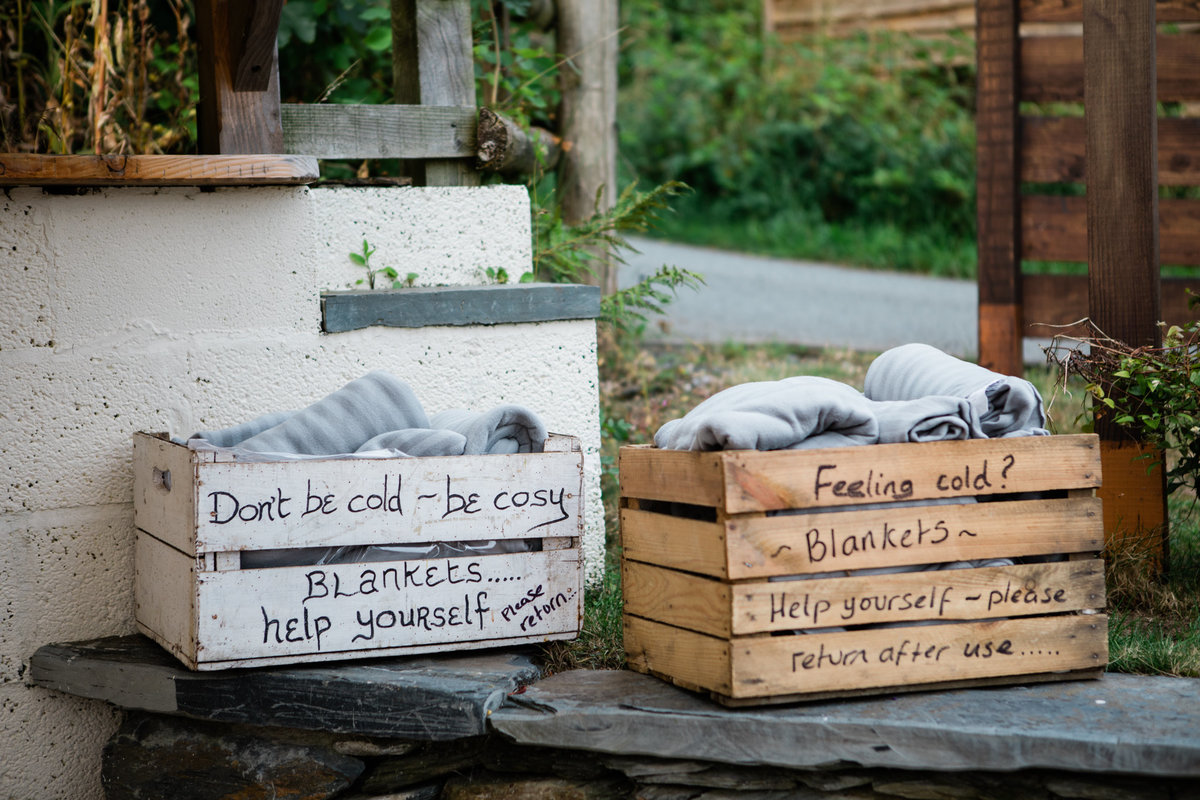 Don't be cold ~ be cosy
Blankets.....
help yourself
Please
return..
Feeling cold?
~ Blankets ~
Help yourself ~ please
return after use.....